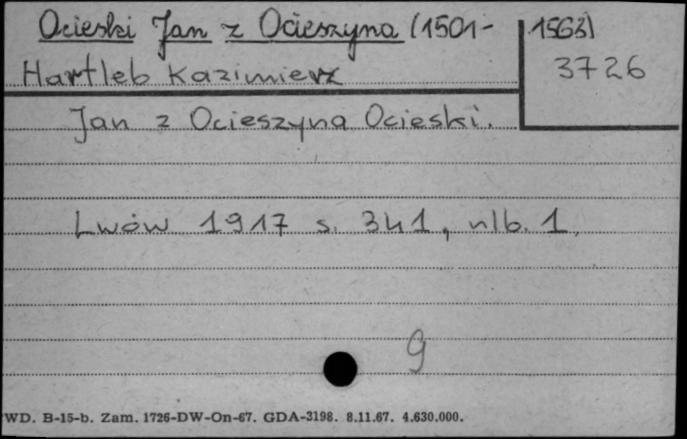 Ocieski Jan z Ocieszyna (1501-1563)
3726
Hartleb Kazimierz
Jan z Ocieszyna Ocieski.
Lwów 1917 s. 341, nlb. 1,
9
WD. B-15-b. Zam. 1726-DW-On-67. GDA-3198. 8.11.67. 4.630.000.